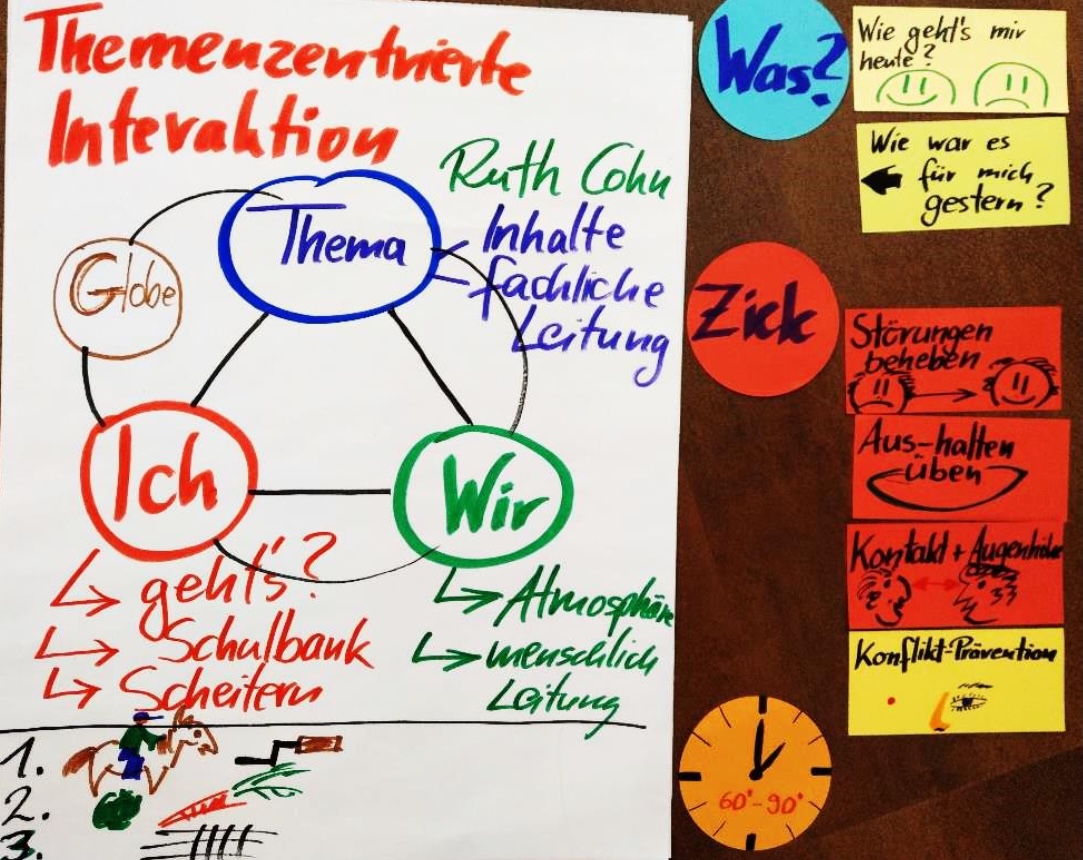 Themenzentrierte
Interaktion
Ruth Cohn
Thema
Inhalte
fachliche
Leitung
Globe
Ich
Wir
geht's?
Schulbank
Scheitern
Atmosphäre
menschlich
Leitung
1.
2.
3.
Was?
Wie geht's mir
heute?
Wie war es
für mich
gestern?
Zick
Störungen
beheben
Aus-halten
üben
Kontakt + Augenhöhe
Konflikt-Prävention
60'-90'